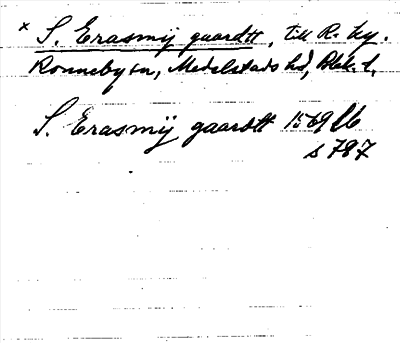 x S. Erasmij gaardtt, till R. ky.
Ronneby sn, Medelstads hd, Blek. l.
S. Erasmij gaardtt 1569 Jb
s 787